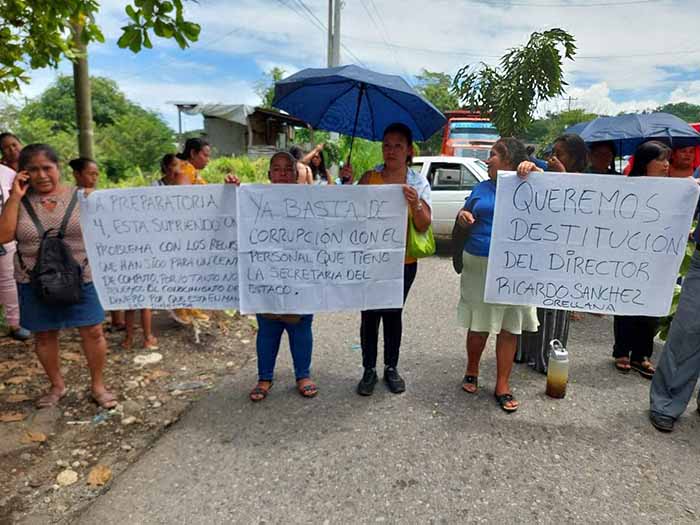 A PREPARATORIA
4, ESTA SUFRIENDO UN
PROBLEMA CON LOS RECUR
QUE HAN SIDO PARA UN CENT
DE COMPUTO, POR LO TANTO NO
EL CONOCIMIENTO DE
DINERO POR QUE ESTA EN MA
YA BASTA DE
CORRUPCIÓN CON EL
PERSONAL QUE TIENE
LA SECRETARIA DEL
ESTACO.
QUEREMOS
DESTITUCIÓN
DEL DIRECTOR
RICARDO SANCHEZ
ORELLANA